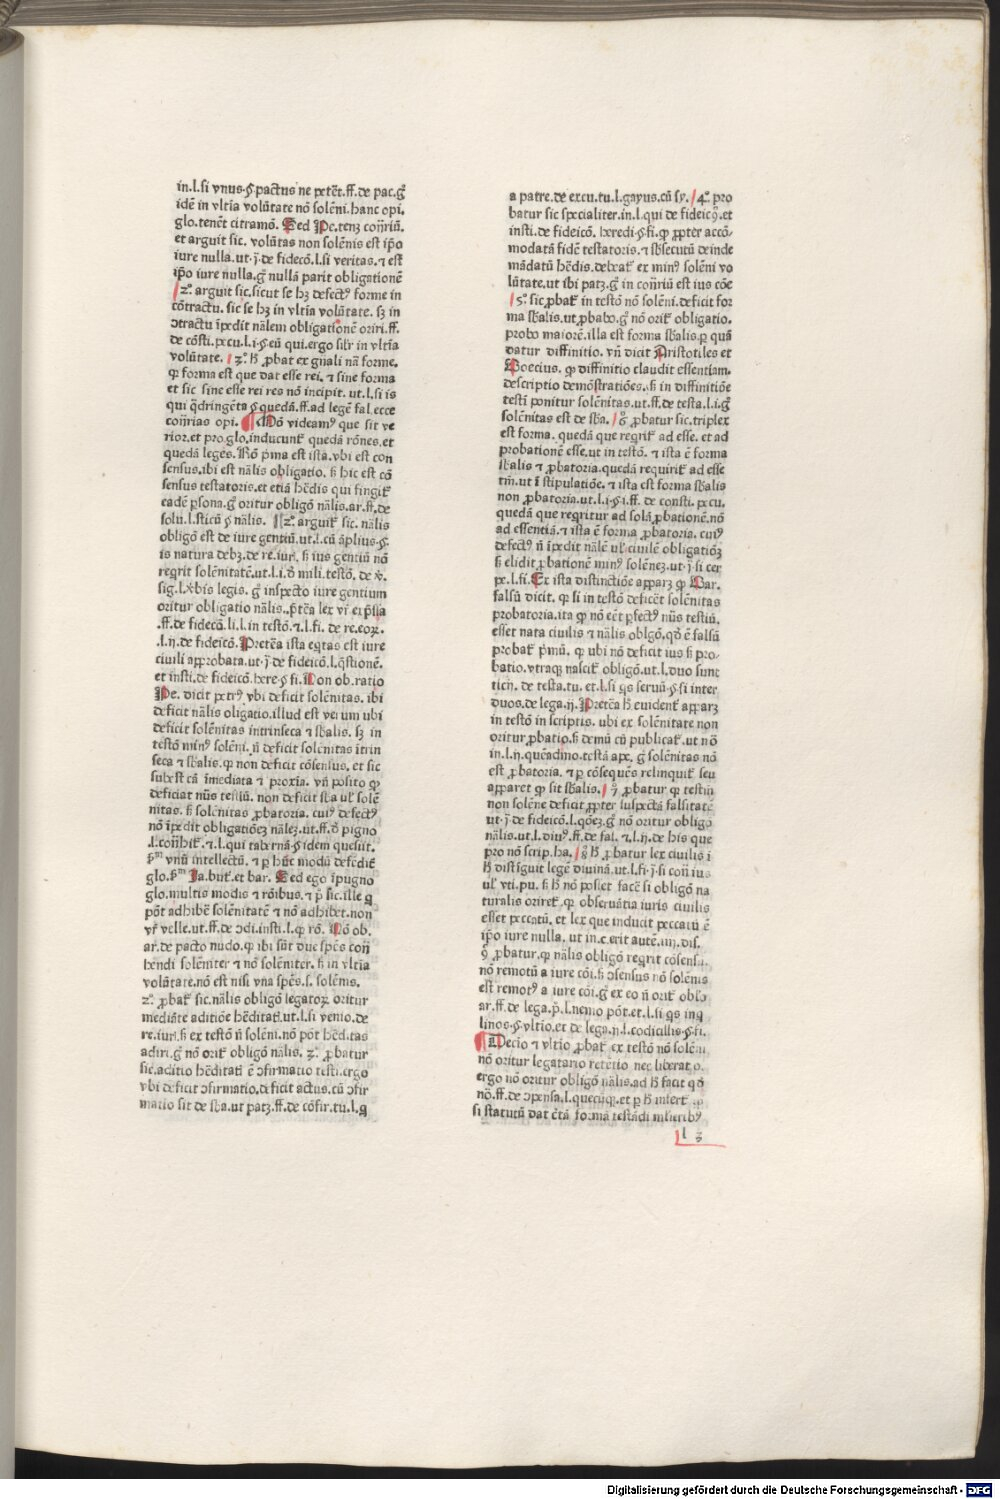 in.l.si vnus.§.pactus ne peteret̄.ff.de pac.gͦ
idē in vltīa volūtate nō solēni.hanc opi.
glo.tenēt citramō. Sed Pe.tenꝫ cōn̄riū.
et arguit sic. volūtas non solēnis est ip̄o
iure nulla.ut.j̄.de fidecō.l.si veritas.⁊ est
ip̄o iure nulla.gͦ nullā parit obligationē
2ͦ. arguit sic.sicut se hꝫ defectꝰ forme in
cōtractu. sic se hꝫ in vltīa volūtate. sꝫ in
ↄtractu īpedit nālem obligationē oriri.ff.
de cōsti.pecu.l.i.§.eū qui.ergo silr̄ in vltīa
volūtate. 3ͦ. h̄ ꝓbat ex gn̄ali nā forme.
ꝙ forma est que dat esse rei. ⁊ sine forma
et sic sine esse rei res nō incipit. ut.l.si is
qui q̄dringēta §.quedā.ff.ad legē fal.ecce
cōn̄rias opi. Mō videamꝰ que sit ve
rior.et pro glo.inducunt̄ quedā rōnes.et
quedā leges. Rō p̄ma est ista.vbi est con
sensus.ibi est nālis obligatio. s̄ hic est cō
sensus testatoris.et etiā hēdis qui fingit̄
eadē ꝑsona.gͦ oritur obligō nālis.ar.ff.de
solu.l.sticū §.nālis. 2ͦ. arguit̄ sic. nālis
obligō est de iure gentiū.ut.l.cū āplius.§.
is natura debꝫ.de re.iur. s̄ ius gentiū nō
reqrit solēnitatē.ut.l.i.ō mili.testō. de v̄.
sig.l.v̄bis legis. gͦ inspecto iure gentium
oritur obligatio nālis. p̄tēa lex vr̄ exp̄ssa
.ff.de fidecō.li.l.in testō.⁊.l.fi. de re.eoꝝ.
.l.ij.de fideicō. Pretēa ista eqtas est iure
ciuili approbata.ut.j̄.de fideicō.l.q̄stionē.
et insti.de fideicō.here.§.fi. Non ob.ratio
Pe. dicit petrꝰ vbi deficit solēnitas. ibi
deficit nālis oligatio.illud est verum ubi
deficit solēnitas intrinseca ⁊ sb̄alis. sꝫ in
testō minꝰ solēni. n̄ deficit solēnitas ītrin
seca ⁊ sb̄alis.ꝙ non deficit cōsensus. et sic
subest cā īmediata ⁊ proxīa. vn̄ posito ꝙ
deficiat nūs testiū. non deficit sb̄a ul̓ solē
nitas. s̄ solēnitas ꝓbatoria. cuiꝰ defectꝰ
nō īpedit obligatiōeꝫ nāleꝫ.ut.ff.ō pigno
.l.con̄hit̄.⁊.l.qui tabernā §.idem quesiit.
p̄ᵐ vnū intellectū. ⁊ ꝑ hūc modū defēdit̄
glo.p̄ᵐ Ja.but̄.et bar. Sed ego īpugno
glo.multis modis ⁊ rōibus. ⁊ p̄ sic.ille q
pōt adhibē solēnitatē ⁊ nō adhibet.non
vr̄ velle.ut.ff.de ↄdi.insti.l.ꝙ rō. Nō ob.
ar.de pacto nudo.ꝙ ibi sūt due sp̄es con̄
hēndi solēniter ⁊ nō solēniter. s̄ in vltīa
volūtate.nō est nisi vna sp̄es.s. solēnis.
2ͦ. ꝓbat̄ sic.nālis obligō legatoꝝ oritur
mediāte aditiōe hēditat̄.ut.l.si venio.de
re.iur.s̄ ex testō n̄ solēni.nō pōt hēditas
adiri.gͦ nō orit̄ obligō nālis. 3ͦ. ꝓbatur
sic.aditio hēditatī ē ↄfirmatio testi.ergo
vbi deficit ↄfirmatio.deficit actus.cū ↄfir
matio sit de sb̄a.ut patꝫ.ff.de cōfir.tu.l.q
a patre.de excu.tu.l.gayus.cū sy. 4ͦ. pro
batur sic specialiter.in.l.qui de fideicꝰ.et
insti.de fideicō. heredi.§.fi.ꝙ ꝓpter accō-
modatā fidē testatoris.⁊ sb̄secutū deinde
mādatū hēdis.debeat̄ ex minꝰ solēni vo
lūtate.ut ibi patꝫ.gͦ in cōn̄riū est ius cōe
5ͦ. sic ꝓbat̄ in testō nō solēni.deficit for
ma sb̄alis.ut ꝓbabo.gͦ nō orit̄ obligatio.
probo maiorē.illa est forma sb̄alis.ꝑ quā
datur diffinitio. vn̄ dicit Aristotiles et
Boecius. ꝙ diffinitio claudit essentiam.
descriptio demōstratiōes.s̄ in diffinitiōe
testī ponitur solēnitas.ut.ff.de testa.l.i.gͦ
solēnitas est de sb̄a. 6ͦ. ꝓbatur sic.triplex
est forma. quedā que reqrit̄ ad esse. et ad
probationē esse.ut in testō. ⁊ ista ē forma
sb̄alis ⁊ ꝓbatoria.quedā requirit̄ ad esse
tm̄.ut ī stipulatiōe. ⁊ ista est forma sb̄alis
non ꝓbatoria.ut.l.i.§.i.ff. de consti. pecu.
quedā que reqritur ad solā ꝓbationē.nō
ad essentiā.⁊ ista ē forma ꝓbatoria. cuiꝰ
defectꝰ n̄ īpedit nālē ul̓ ciuilē obligatiōꝫ
s̄ elidit ꝓbationē minꝰ solēneꝫ.ut.j̄.si cer
pe.l.fi. Ex ista distinctiōe apparꝫ ꝙ Bar.
falsū dicit. ꝙ si in testō deficēt solēnitas
probatoria.ita ꝙ nō eēt ꝑfectꝰ nūs testiū.
esset nata ciuilis ⁊ nālis oblgō.qd̄ ē falsū
probat̄ p̄mū. ꝙ ubi nō deficit ius s̄ pro-
batio.vtraqꝫ nascit̄ obligō.ut.l.duo sunt
ticij. de testa.tu. et.l.si qs seruū.§.si inter
duos.de lega.ij. Pretēa h̄ euident̄ apparꝫ
in testō in scriptis. ubi ex solēnitate non
oritur ꝓbatio.s̄ demū cū publicat̄.ut nō
in.l.ij.quēadmo.testā ape. gͦ solēnitas nō
est ꝓbatoria. ⁊ ꝑ cōsequēs relinquit̄ seu
apparet ꝙ sit sb̄alis. 7ͦ ꝓbatur ꝙ testiū
non solēne deficit ꝓpter suspectā falsitatē
ut.j̄.de fideicō.l.qōeꝫ.gͦ nō oritur obligō
nālis.ut.l.diuꝰ.ff.de fal. ⁊.l.ij.de his que
pro nō scrip.ha. 8ͦ h̄ ꝓbatur lex ciuilis ī
h̄ distīguit legē diuinā.ut.l.fi.j̄.si con̄ ius
ul̓ vti.pu. s̄ h̄ nō posset facē si obligō na
turalis oriret̄. ꝙ obseruātia iuris ciuilis
esset peccatū. et lex que inducit peccatū ē
ip̄o iure nulla. ut in.c.erit autē.iiij.dis.
9ͦ ꝓbatur.ꝙ nālis obligō reqrit cōsensū.
nō remotū a iure cōi.s̄ ↄsensus nō solēnis
est remotꝰ a iure cōi.gͦ ex eo n̄ orit̄ obl̄o
ar.ff.de lega.p̄.l.nemo pōt.et.l.si qs inq̄
linos.§.vltio.et de lega.ij.l.codicillis.§.fi.
Decīo ⁊ vltīo ꝓbat̄ ex testō nō solēni
nō oritur legatario retētio nec liberatō.
ergo nō oritur obligō nālis.ad h̄ facit qd̄
nō.ff.de ↄpensa.l.quecūqꝫ.et ꝑ h̄ infert̄ ꝙ
si statutū dat cētā formā testādi mlieribꝰ
l 3
Digitalisierung gefördert durch die Deutsche Forschungsgemeinschaft - DFG